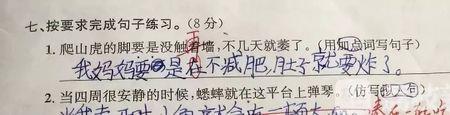 七、按要求完成句子练习。(8分)
1. 爬山虎的脚要是没触着墙,不几天就萎了。(用加点词写句子)
我妈妈要是在不减肥,肚子就要炸了。
2. 当四周很安静的时候,蟋蟀就在这平台上弹琴。(仿写拟人句)